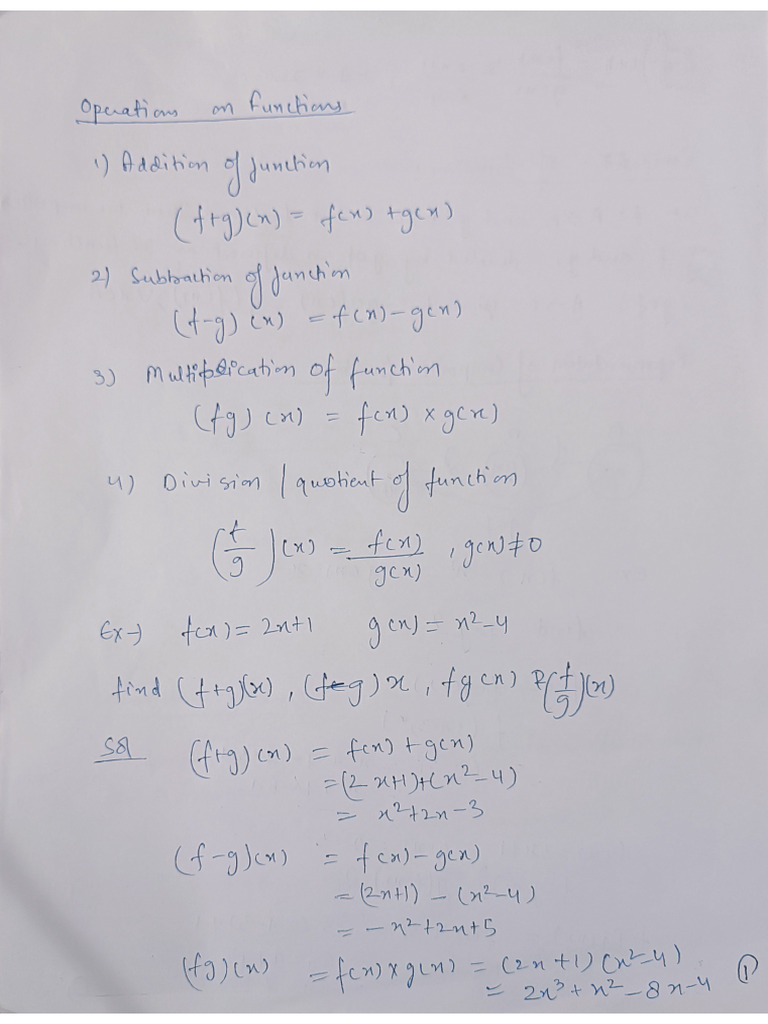 Operations on functions
1) Addition of function
(f+g)(x) = f(x) + g(x)
2) Subtraction of function
(f-g)(x) = f(x) - g(x)
3) Multiplication of function
(fg)(x) = f(x) × g(x)
4) Division / quotient of function
(f/g)(x) = f(x)/g(x) , g(x) ≠ 0
Ex→ f(x) = 2x+1 g(x) = x²-4
find (f+g)(x) , (f-g)x , fg(x) & (f/g)(x)
Sol (f+g)(x) = f(x) + g(x)
= (2x+1)+(x²-4)
= x²+2x-3
(f-g)(x) = f(x) - g(x)
= (2x+1) - (x²-4)
= -x²+2x+5
(fg)(x) = f(x) × g(x) = (2x+1)(x²-4)
= 2x³+x²-8x-4 ①